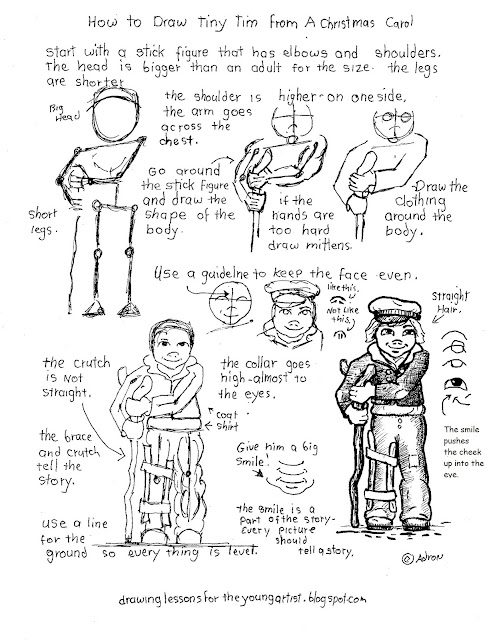 How to Draw Tiny Tim From A Christmas Carol
Start with a stick figure that has elbows and shoulders.
The head is bigger than an adult for the size. the legs
are shorter
Big
Head
the shoulder is higher on one side,
the arm goes
across the
chest.
Go around
the stick figure
and draw the
shape of the
body.
Short
legs.
if the
hands are
too hard
draw mittens.
Draw the
clothing
around the
body.
Use a guidelne to keep the face even.
like this.
Not like
this.
Straight
Hair.
the crutch
is Not
straight.
the collar goes
high-almost to
the eyes.
coat
shirt
the brace
and crutch
tell the
story.
Give him a big
smile!
The smile
pushes
the cheek
up into the
eye.
the smile is a
part of the story-
Every picture
should
tell a story.
Use a line
for the
ground so every thing is level.
© Adron
drawing lessons for the young artist. blogspot.com